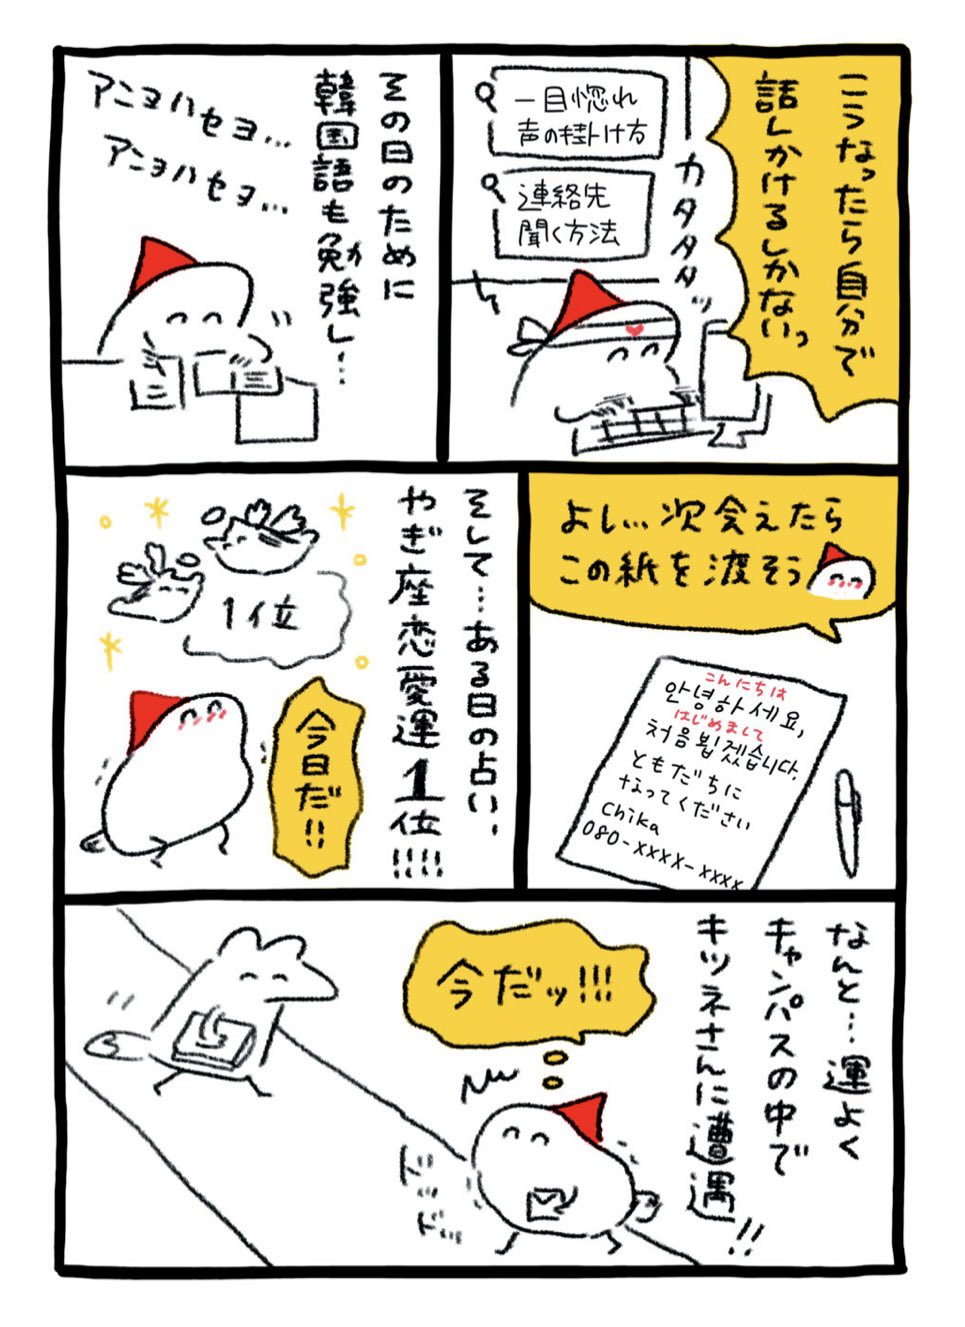 こうなったら自分で
話しかけるしかないっ
一目惚れ
声の掛け方
連絡先
聞く方法
カタタタッ
その日のために
韓国語も勉強し…
アニョハセヨ…
アニョハセヨ…
よし…次会えたら
この紙を渡そう
こんにちは
안녕하세요,
はじめまして
처음뵙겠습니다.
ともだちに
なってください
chika
080-xxxx-xxxx
そして…ある日の占い、
やぎ座恋愛運1位!!!!
1位
今日だ!!
なんと…運よく
キャンパスの中で
キツネさんに遭遇!!
今だッ!!!
ドッ
ドッ